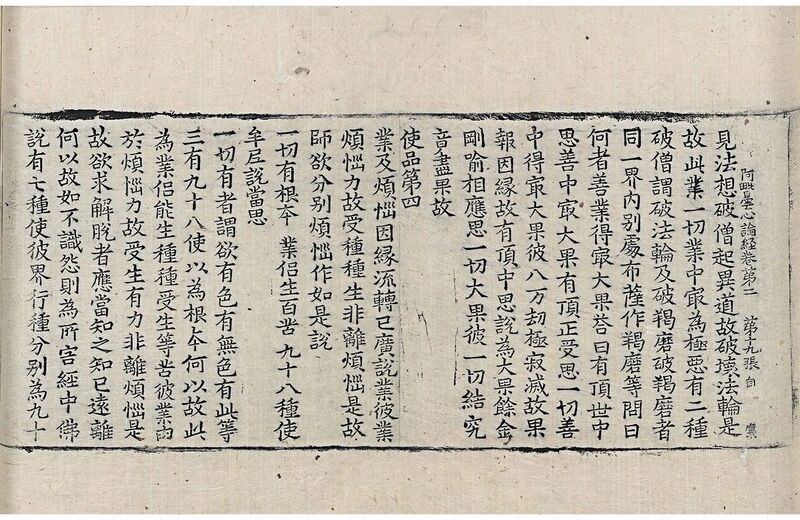 阿毗曇心論經卷第二 第十九張 自
見法想破僧起異道故破壞法輪是
故此業一切業中㝡為極惡有二種
破僧謂破法輪及破羯磨破羯磨者
同一界內別處布薩作羯磨等問曰
何者善業得㝡大果荅曰有頂世中
思善中㝡大果有頂正受思一切善
中得㝡大果彼八万劫極寂滅故果
報因緣故有頂中思說為大果餘金
剛喻相應思一切大果彼一切結究
竟盡果故
使品第四
業及煩惱因緣流轉已廣說業彼業
煩惱力故受種種生非離煩惱是故
師欲分別煩惱作如是說
一切有根夲 業侣生百苦 九十八種使
牟尼說當思
一切有者謂欲有色有無色有此等
三有九十八使以為根夲何以故此
為業侣能生種種受生等苦彼業由
於煩惱力故受生有力非離煩惱是
故欲求解脫者應當知之知已遠離
何以故如不識怨則為所害經中佛
說有七種使彼界行種分別為九十